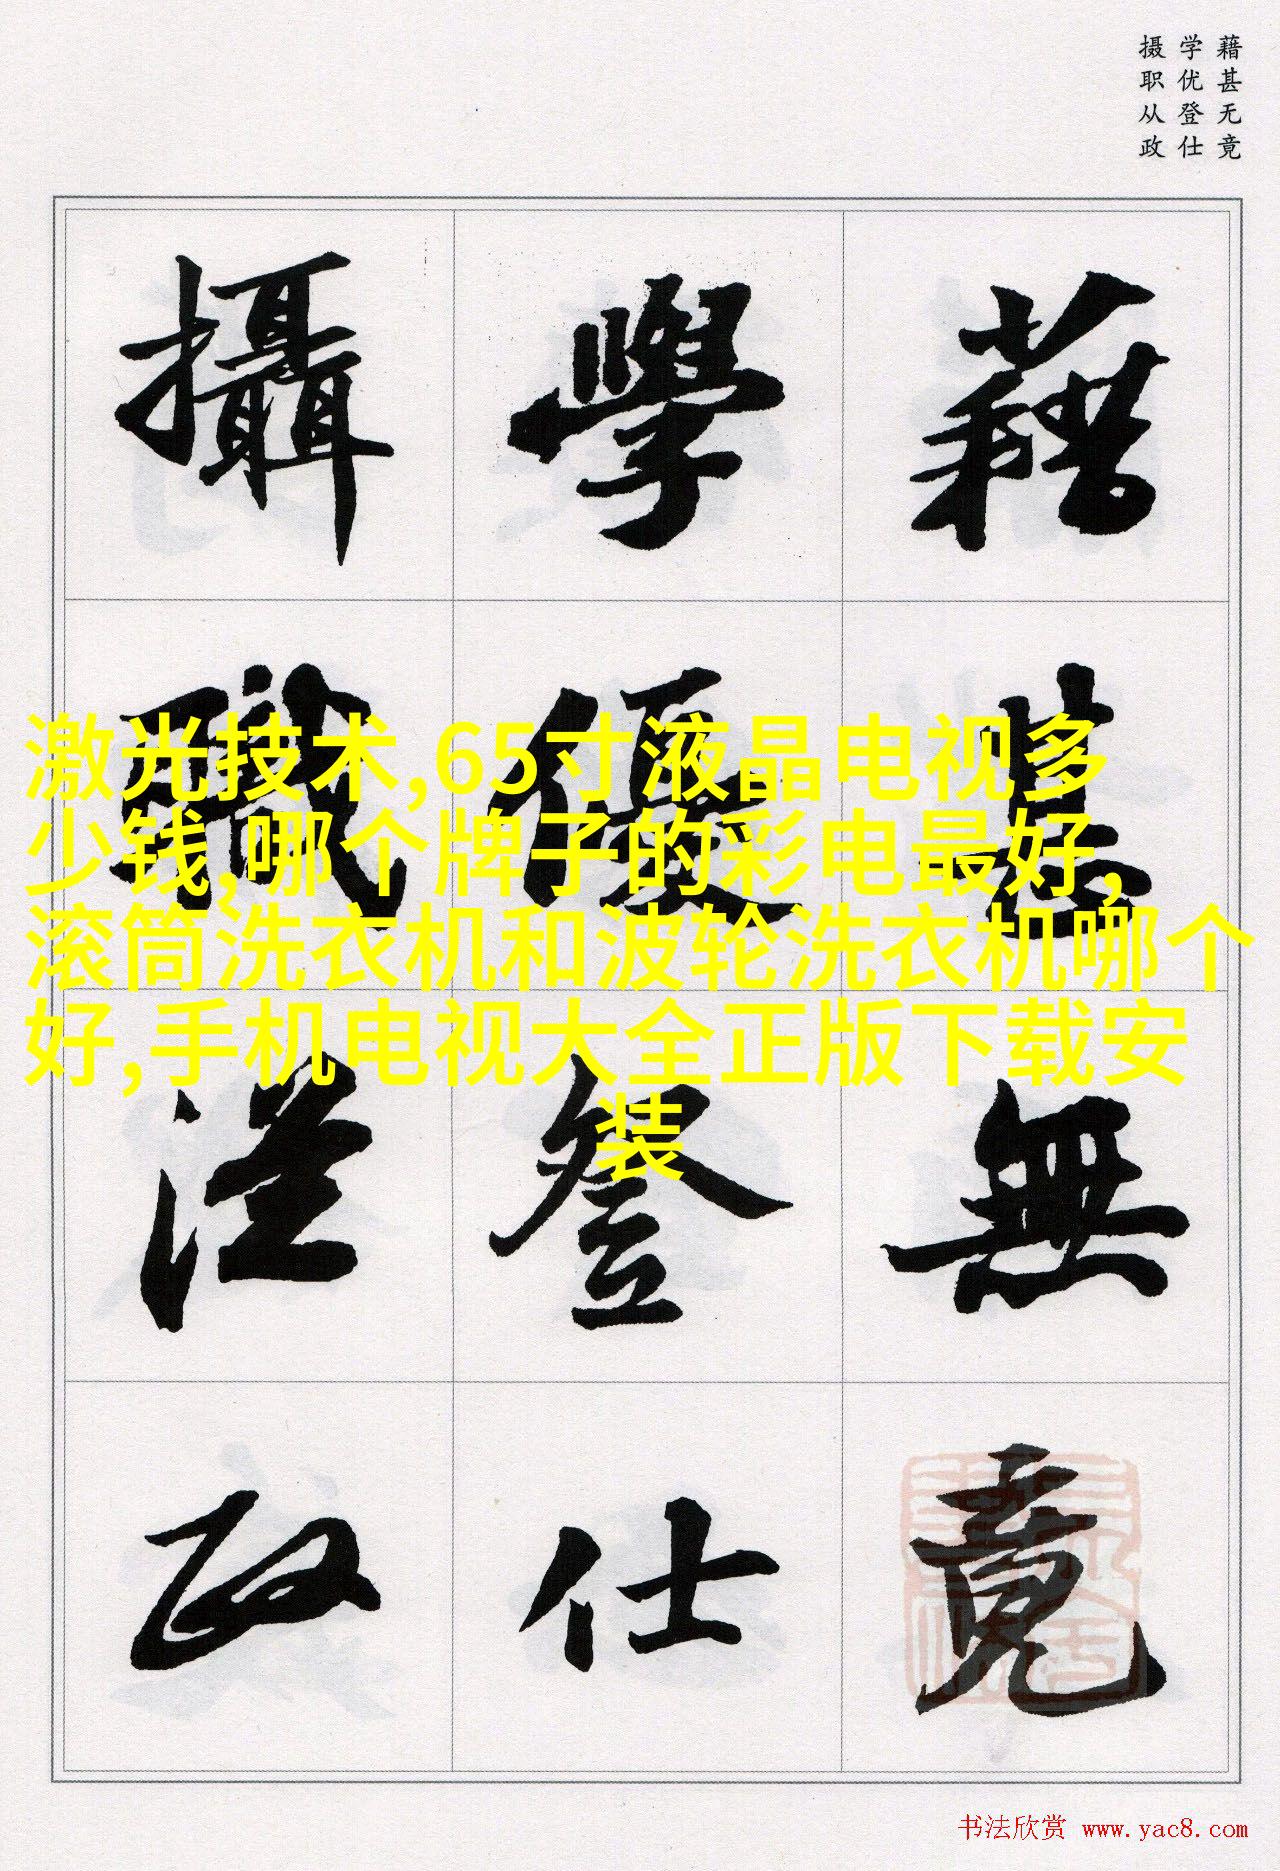 藉甚无竟
学优登仕
摄职从政
藉甚無竟
學優登仕
攝職從政
激光技术,65寸液晶电视多
少钱,哪个牌子的彩电最好,
滚筒洗衣机和波轮洗衣机哪个
好,手机电视大全正版下载安
装
书法欣赏 www.yac8.com